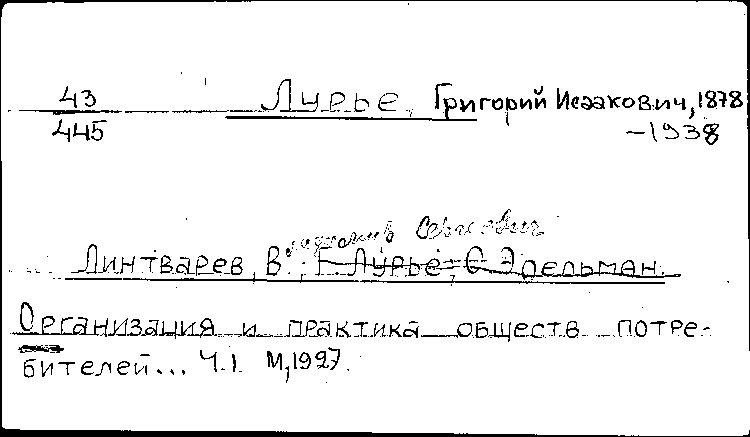 43 Лурье, Григорий Исаакович, 1878
445 -1938
Владимир Сергеевич
Линтварев, В., Г. Лурье, С. Эдельман.
Организация и практика обществ потре-
бителей... Ч.1. М, 1927.